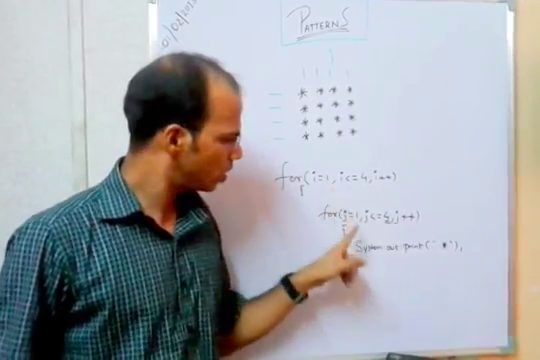 01/02/202
PATTERNS
* * * *
* * * *
* * * *
* * * *
for(i=1,i<=4,i++)
{
for(j=1,j<=4,j++)
{
System.out.print(" *");